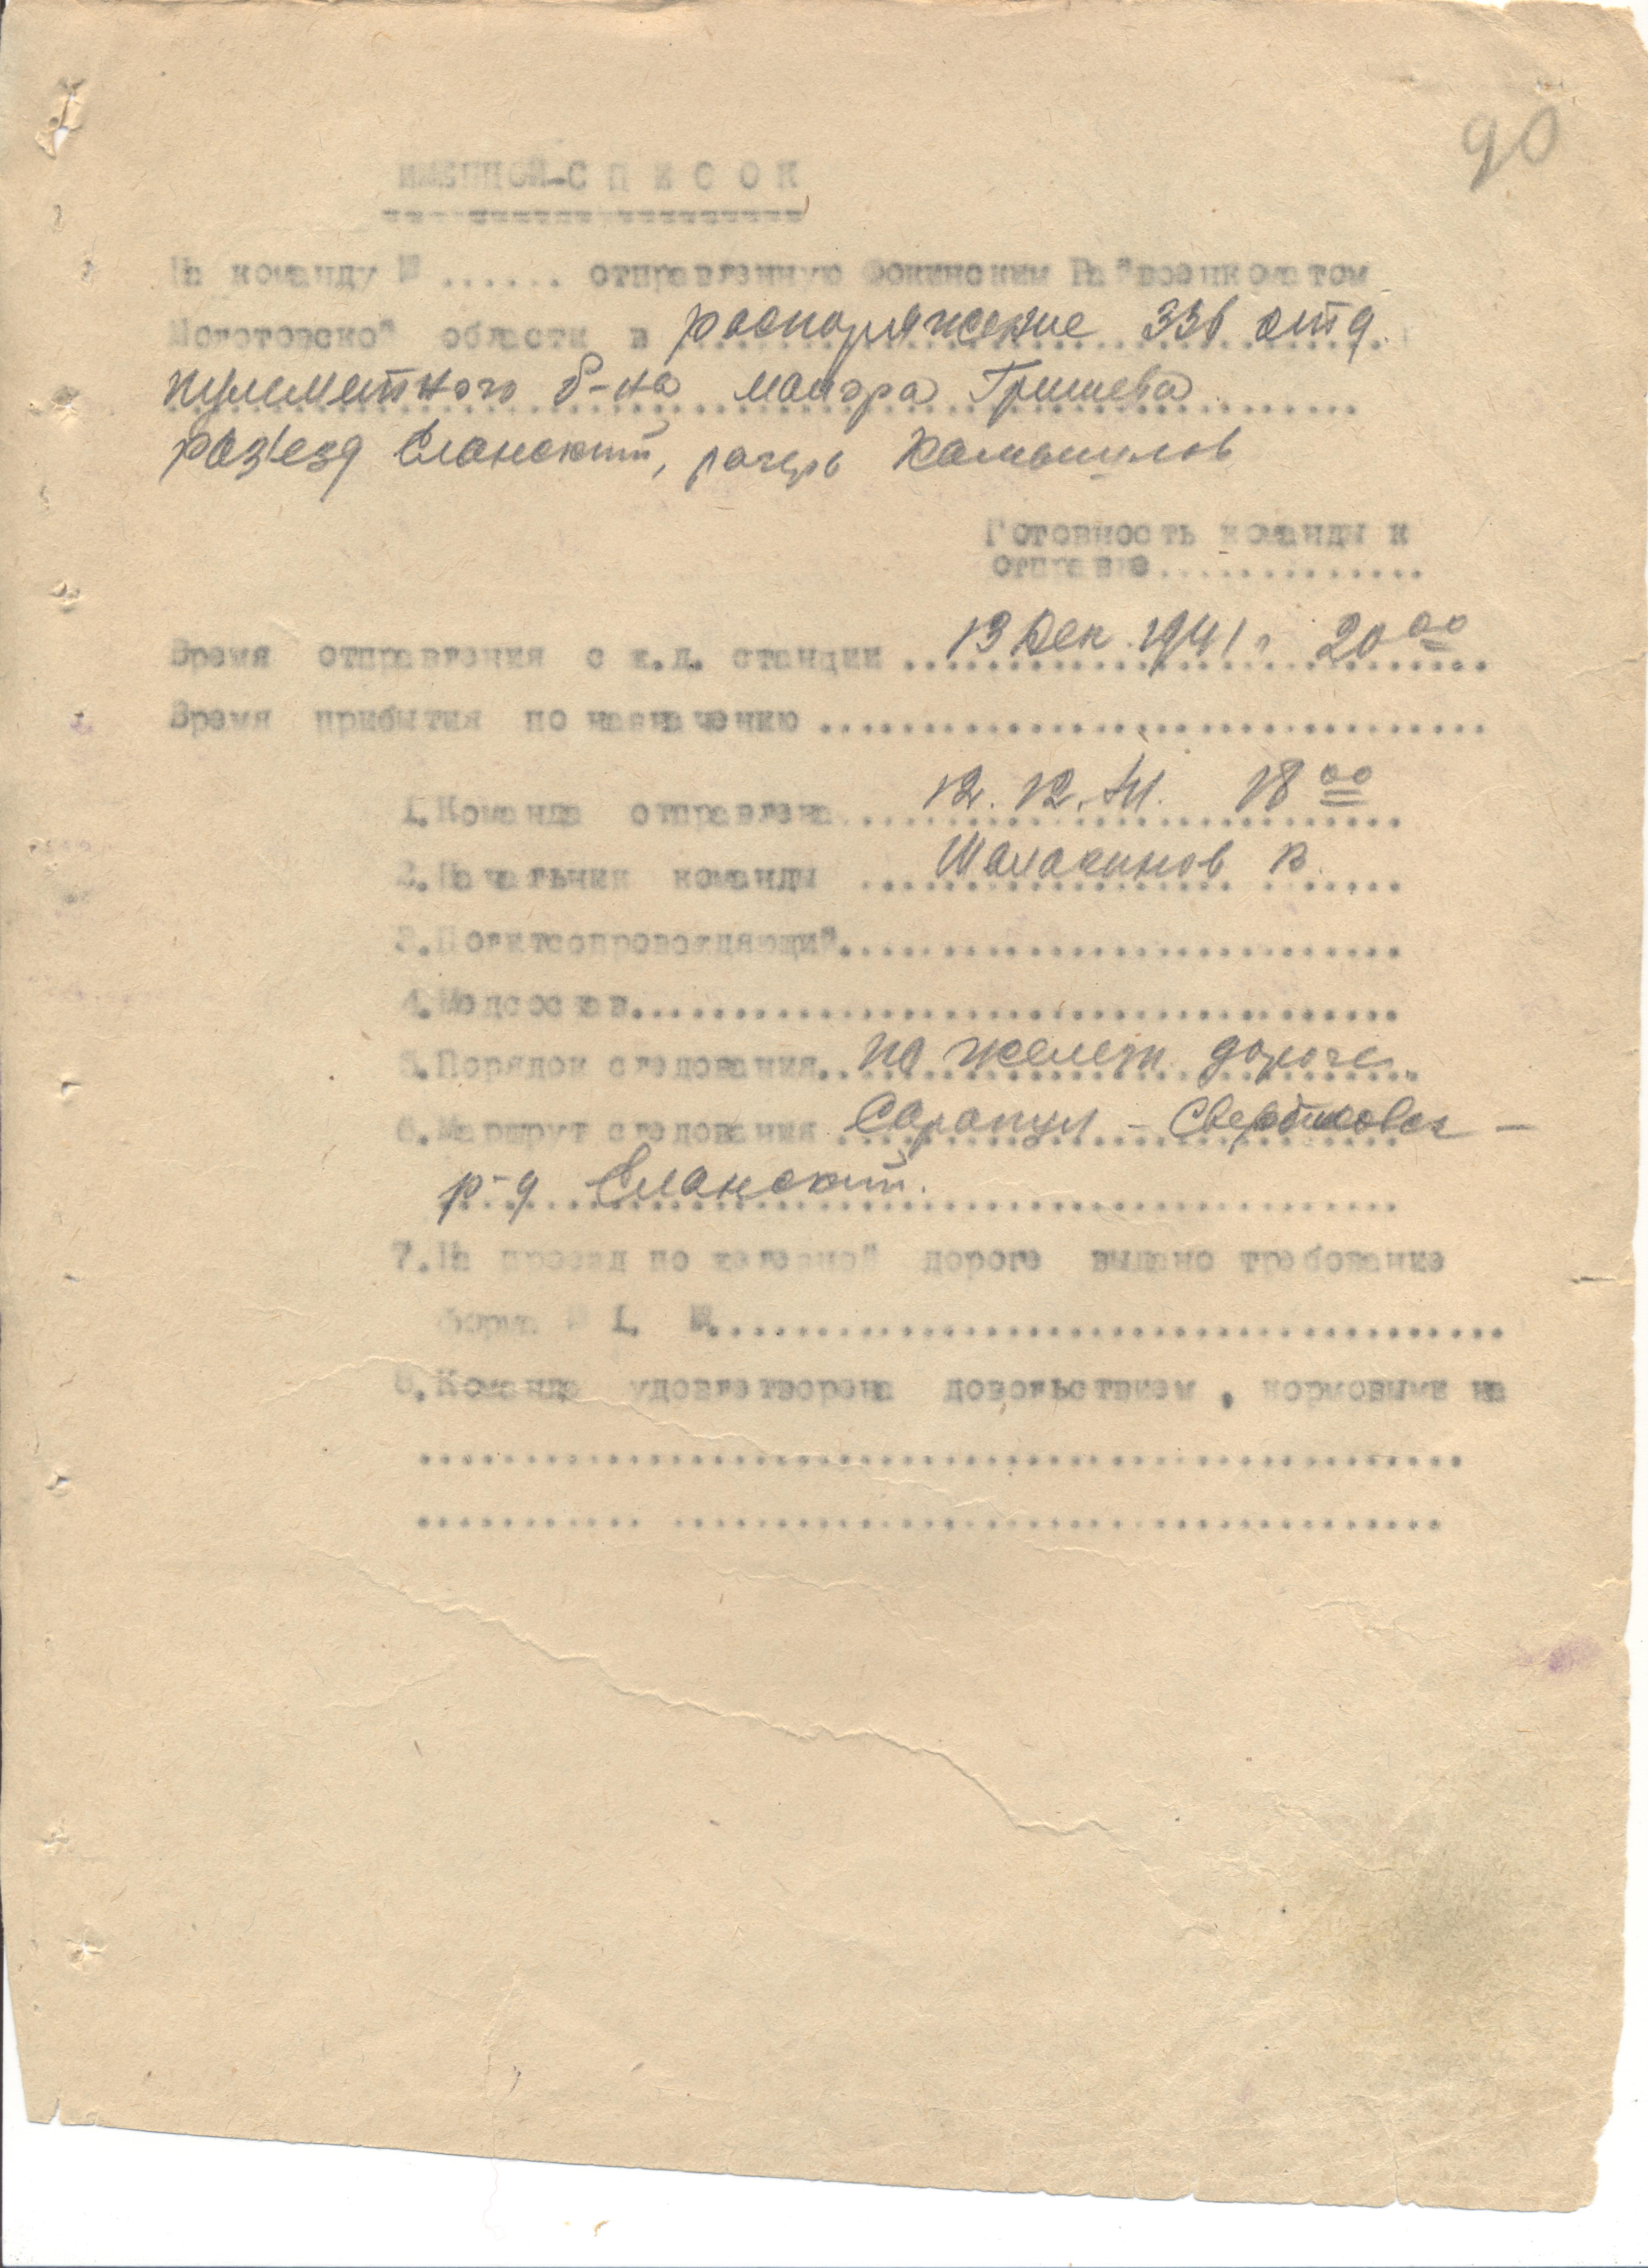 90
ИМЕННОЙ-С П И С О К
На команду № ...... отправленную Фокинским Райвоенкоматом
Молотовской области в распоряжение 336 отд.
пулеметного б-на майора Гришева
раз'езд Еланский, лагерь Камышлов
Готовность команды к
отправке..............
Время отправления с ж.д. станции ..13 Дек. 1941 г. 20 00
Время прибытия по назначению .................................
1.Команда отправлена 12. 12. 41. 18 00
2.Начальник команды Шалакинов В.
3.Политсопровождающий............................
4.Медсостав......................................
5.Порядок следования..по железн. дороге.
6.Маршрут следования Сарапул - Свердловск -
р-д Еланский.
7.На проезд по железной дороге выдано требование
форма № 1. №.......................................
8.Команда удовлетворена довольствием, кормовыми на
..................................................
........... .....................................